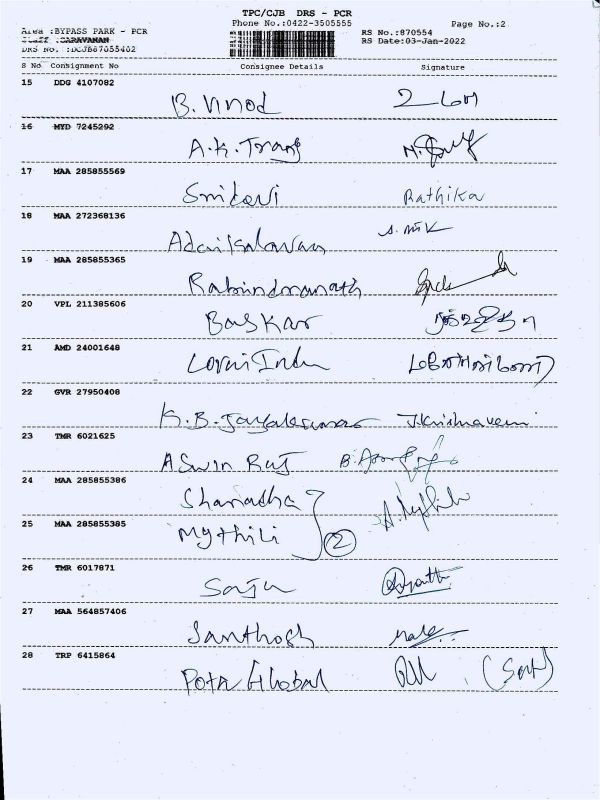 TPC/CJB DRS - PCR
Area :BYPASS PARK - PCR
Phone No.:0422-3505555
Page No.:2
Staff :SARAVANAN
RS No.:870554
DRS No. :DCJB87055402
RS Date:03-Jan-2022
S No Consignment No Consignee Details Signature
15 DDG 4107082
B. Vinod
16 MYD 7245292
A.K.
17 MAA 285855569
Sridevi Rathika
18 MAA 272368136
19 MAA 285855365
Rabindranath
20 VPL 211385606
Baskar
21 AMD 24001648
22 GVR 27950408
K.B. Jayakumar J.Krishnaveni
23 TMR 6021625
Aswin Raj
24 MAA 285855386
Sharadha
25 MAA 285855385
Mythili 2
26 TMR 6017871
Saju
27 MAA 564857406
Santhosh
28 TRP 6415864
Pota Global